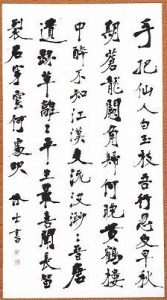 手把仙人白玉枝吾行忽及早秋
期蒼龍闕角歸何晚黃鶴樓
中醉不知江漢交流波渺渺晉唐
遺跡草離離平生最喜聞長笛
裂石穿雲何處吹 士書